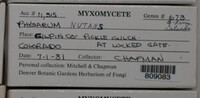 Acc # 1,315 MYXOMYCETE Genus # 673
PHYSARUM NUTANS
Place GILPIN CO: PICKLE GULCH
COLORADO AT LOCKED GATE.
Date 7-1-81 Collector CHAPMAN
Personal collection: Mitchell & Chapman
Denver Botanic Gardens Herbarium of Fungi
809083